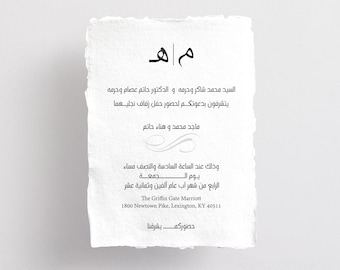 م | هـ
السيد محمد شاكر وحرمه و الدكتور حاتم عصام وحرمه
يتشرفون بدعوتكم لحضور حفل زفاف نجليهما
ماجد محمد و هناء حاتم
وذلك عند الساعة السادسة والنصف مساء
يوم الجمعة
الرابع من شهر آب عام ألفين وثمانية عشر
The Griffin Gate Marriott
1800 Newtown Pike, Lexington, KY 40511
حضوركم يشرفنا